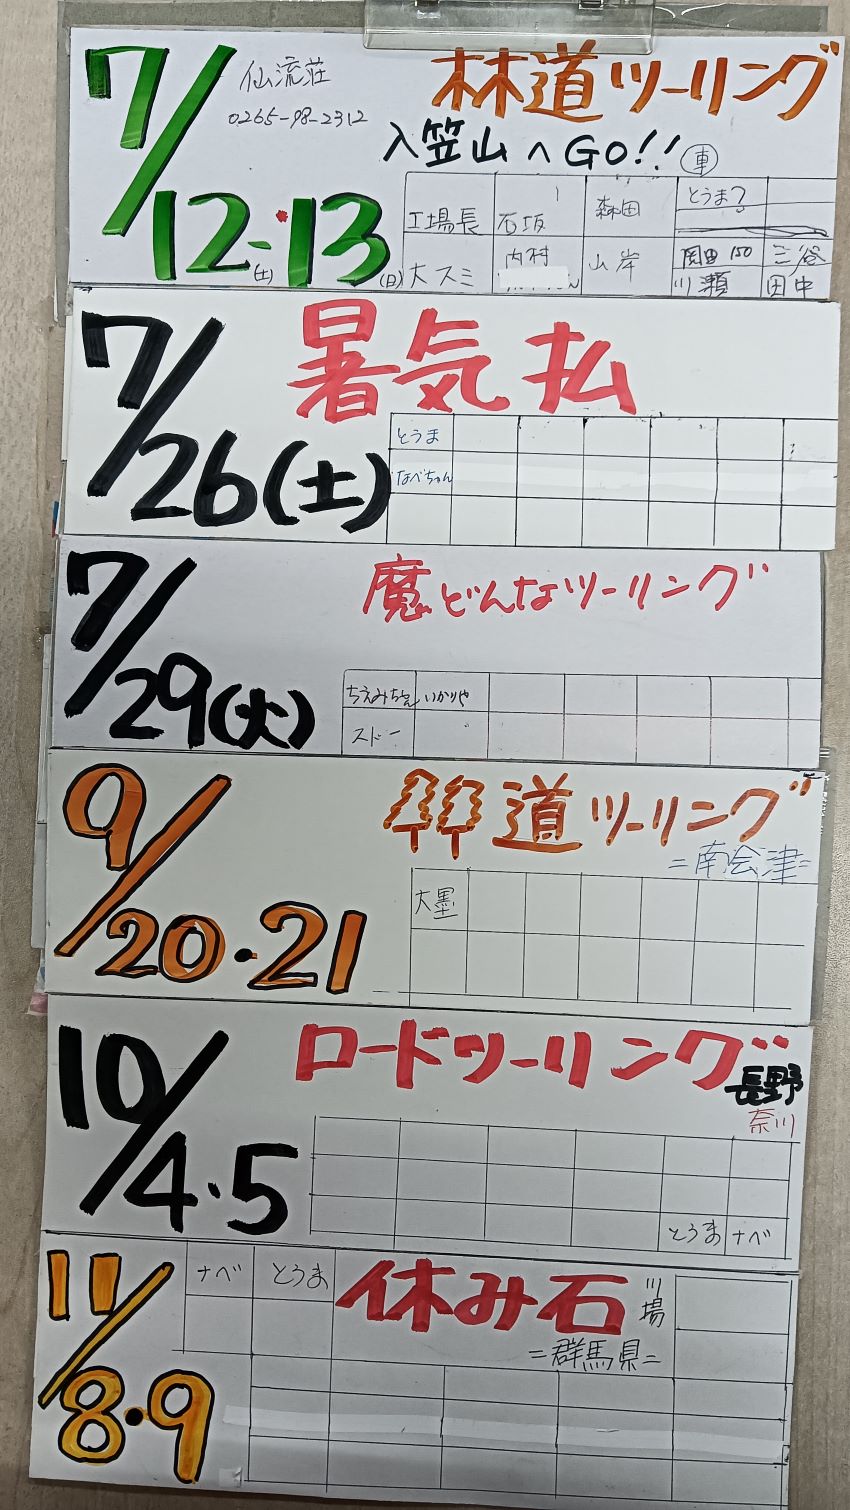 7/12(土)・13(日)
仙流荘
0265-98-2312
林道ツーリング
入笠山へGO!! 車
工場長 石坂 森田 とうま?
大スミ 内村 山岸 岡田150 三谷
川瀬 田中
7/26(土)
暑気払
とうま
なべちゃん
7/29(火)
魔どんなツーリング
ちえみちゃん いかりや
スドー
9/20・21
道ツーリング
=南会津=
大墨
10/4・5
ロードツーリング
長野
奈川
とうま ナベ
11/8・9
ナベ とうま
休み石
川場
=群馬県=